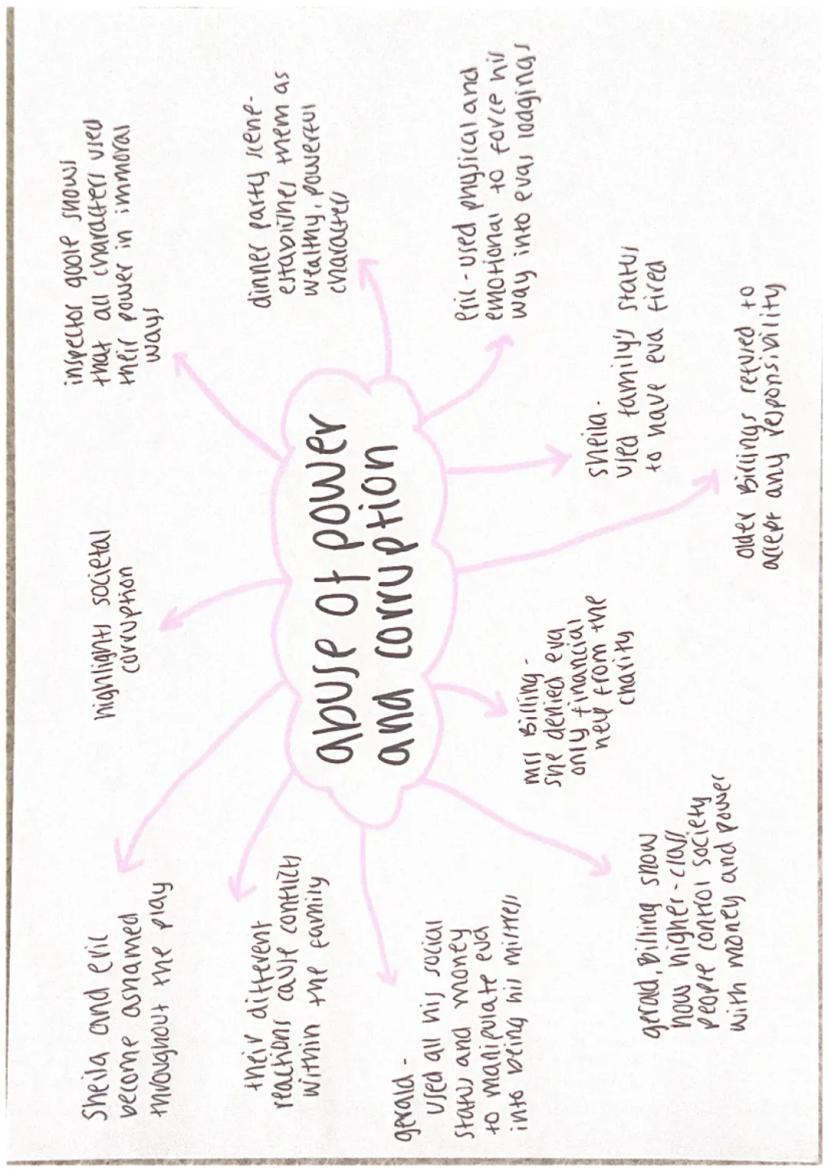 abuse of power
and corruption
Sheila and eric
become ashamed
throughout the play
highlights societal
corruption
inspector goole shows
that all character used
their power in immoral
ways
their different
reactions cause conflict
within the family
dinner party scene-
establishes them as
wealthy, powerful
characters
gerald -
used all his social
status and money
to manipulate eva
into being his mistress
Eric - used physical and
emotional to force his
way into evas lodgings
mrs Billing -
she denied eva
only financial
help from the
charity
sheila -
used family's status
to have eva fired
gerald, Billing show
how higher-class
people control society
with money and power
older Billings refused to
accept any responsibility